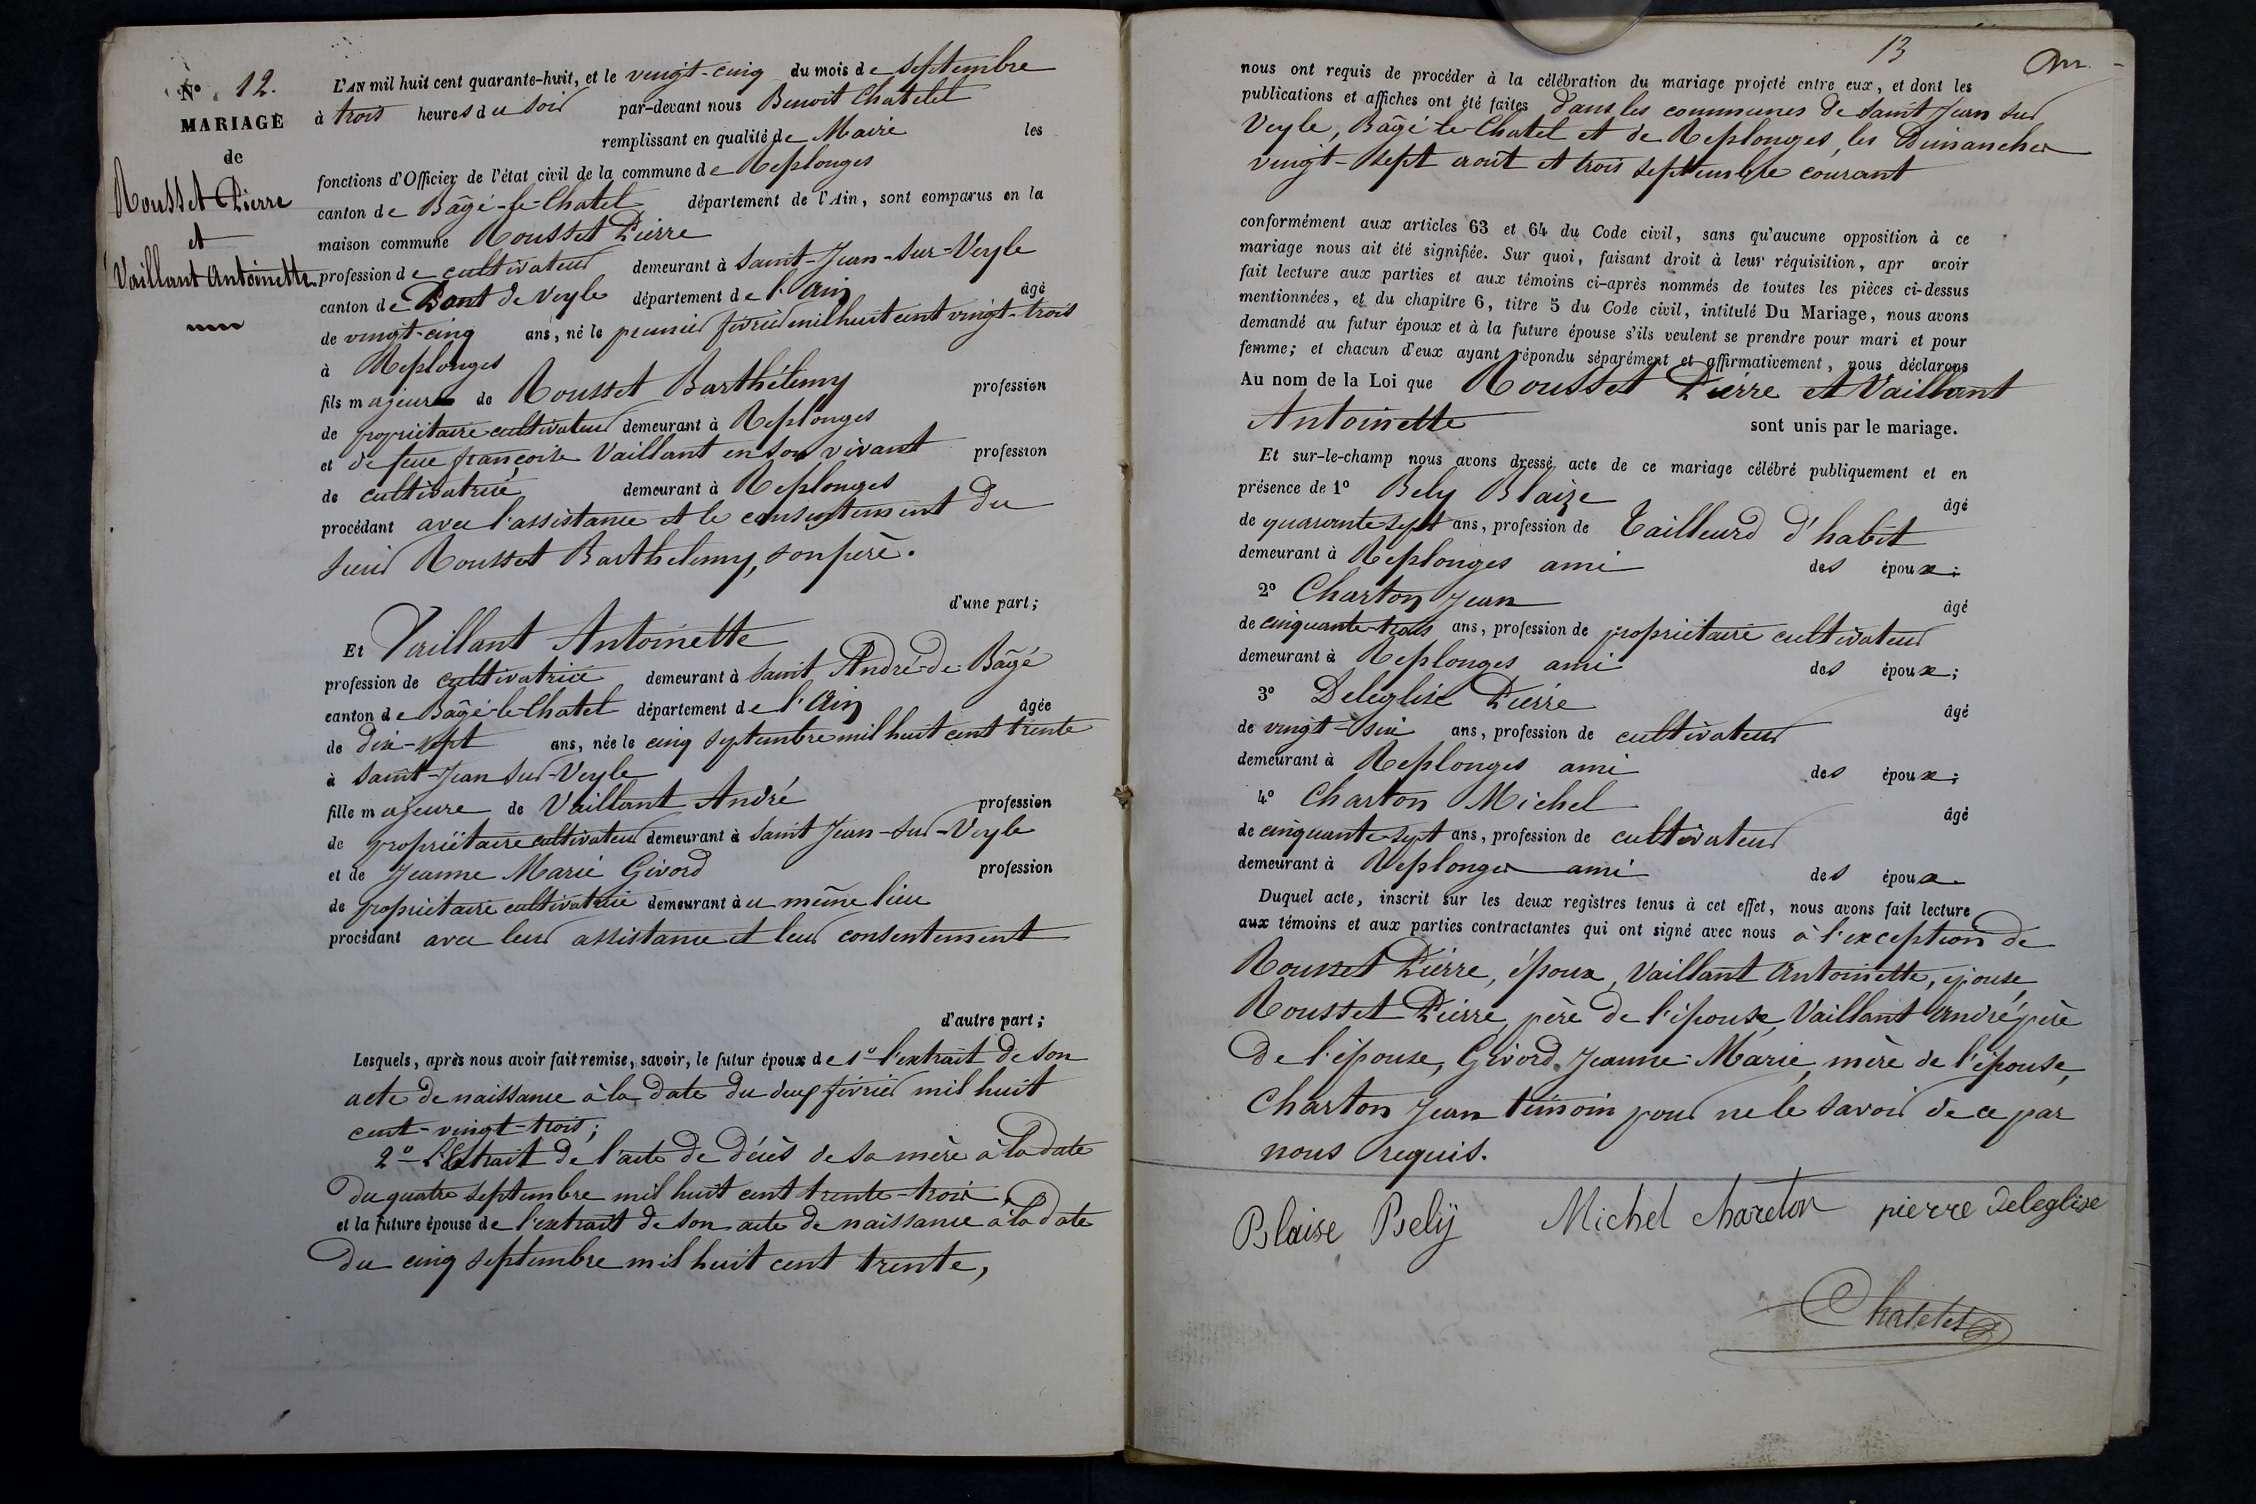 Nº 12.
MARIAGE
de
Rousset Pierre
et
Vaillant Antoinette
L'AN mil huit cent quarante-huit, et le vingt-cinq du mois de septembre
à trois heures du soir par-devant nous Benoit Chatelet
remplissant en qualité de Maire les
fonctions d'Officier de l'état civil de la commune de Replonges
canton de Bâgé-le-Chatel département de l'Ain, sont comparus en la
maison commune Rousset Pierre
profession de cultivateur demeurant à Saint-Jean-sur-Veyle
canton de Pont de Veyle département de l'Ain âgé
de vingt-cinq ans, né le premier février mil huit cent vingt-trois
à Replonges
fils majeur de Rousset Barthélemy profession
de propriétaire cultivateur demeurant à Replonges
et de feue françoise Vaillant en son vivant profession
de cultivatrice demeurant à Replonges
procédant avec l'assistance et le consentement du
sieur Rousset Barthelemy, son père.
d'une part;
Et Vaillant Antoinette
profession de cultivatrice demeurant à Saint André-de-Bâgé
canton de Bâgé-le-Chatel département de l'Ain âgée
de dix-sept ans, née le cinq septembre mil huit cent trente
à Saint-Jean sur-Veyle
fille majeure de Vaillant André profession
de propriétaire cultivateur demeurant à Saint Jean-sur-Veyle
et de Jeanne Marie Givord profession
de propriétaire cultivatrice demeurant à u même lieu
procédant avec leur assistance et leur consentement
d'autre part;
Lesquels, après nous avoir fait remise, savoir, le futur époux de 1º l'extrait de son
acte de naissance à la date du deux février mil huit
cent-vingt-trois;
2º L'Extrait de l'acte de décès de sa mère à la date
du quatre septembre mil huit cent trente-trois,
et la future épouse de l'extrait de son acte de naissance à la date
du cinq septembre mil huit cent trente,
13
nous ont requis de procéder à la célébration du mariage projeté entre eux, et dont les
publications et affiches ont été faites dans les communes de Saint Jean sur
Veyle, Bâgé-le-Chatel et de Replonges, les Dimanches
vingt-sept août et trois septembre courant
conformément aux articles 63 et 64 du Code civil, sans qu'aucune opposition à ce
mariage nous ait été signifiée. Sur quoi, faisant droit à leur réquisition, apr avoir
fait lecture aux parties et aux témoins ci-après nommés de toutes les pièces ci-dessus
mentionnées, et du chapitre 6, titre 5 du Code civil, intitulé Du Mariage, nous avons
demandé au futur époux et à la future épouse s'ils veulent se prendre pour mari et pour
femme; et chacun d'eux ayant répondu séparément et affirmativement, nous déclarons
Au nom de la Loi que Rousset Pierre et Vaillant
Antoinette sont unis par le mariage.
Et sur-le-champ nous avons dressé acte de ce mariage célébré publiquement et en
présence de 1º Bely Blaize âgé
de quarante sept ans, profession de Tailleurd d'habit
demeurant à Replonges ami des époux;
2º Charton Jean âgé
de cinquante-trois ans, profession de propriétaire cultivateur
demeurant à Replonges ami des époux;
3º Deleglise Pierre âgé
de vingt-six ans, profession de cultivateur
demeurant à Replonges ami des époux;
4º Charton Michel âgé
de cinquante-sept ans, profession de cultivateur
demeurant à Replonges ami des époux
Duquel acte, inscrit sur les deux registres tenus à cet effet, nous avons fait lecture
aux témoins et aux parties contractantes qui ont signé avec nous à l'exception de
Rousset Pierre, époux, Vaillant Antoinette, épouse,
Rousset Pierre, père de l'épouse, Vaillant André père
de l'épouse, Givord Jeanne-Marie, mère de l'épouse,
Charton Jean témoin pour ne le savoir de ce par
nous requis.
Blaise Belÿ Michel chareton pierre deleglise
Chatelet